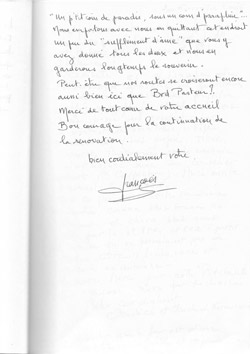 "Un p'tit coin de paradis, sous un coin d'parapluie."
Nous emportons avec nous en quittant cet endroit
un peu du "supplément d'âme" que vous y
avez donné tous les deux et nous en
garderons longtemps le souvenir.
Peut-être que nos routes se croiseront encore
aussi bien ici que Brd Pasteur?.
Merci de tout cœur de votre accueil
Bon courage pour la continuation de
la rénovation.
bien cordialement vôtre
François